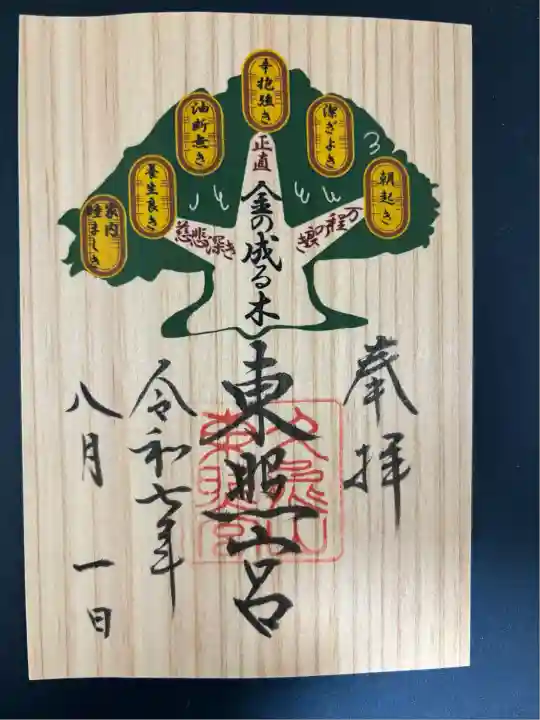 朝起き
潔ぎよき
辛抱強き
油断無き
養生良き
家内睦ましき
正直
万程の好き
慈悲深き
金の成る木
奉拝
東照宮
久能山
東照宮
令和七年
八月一日